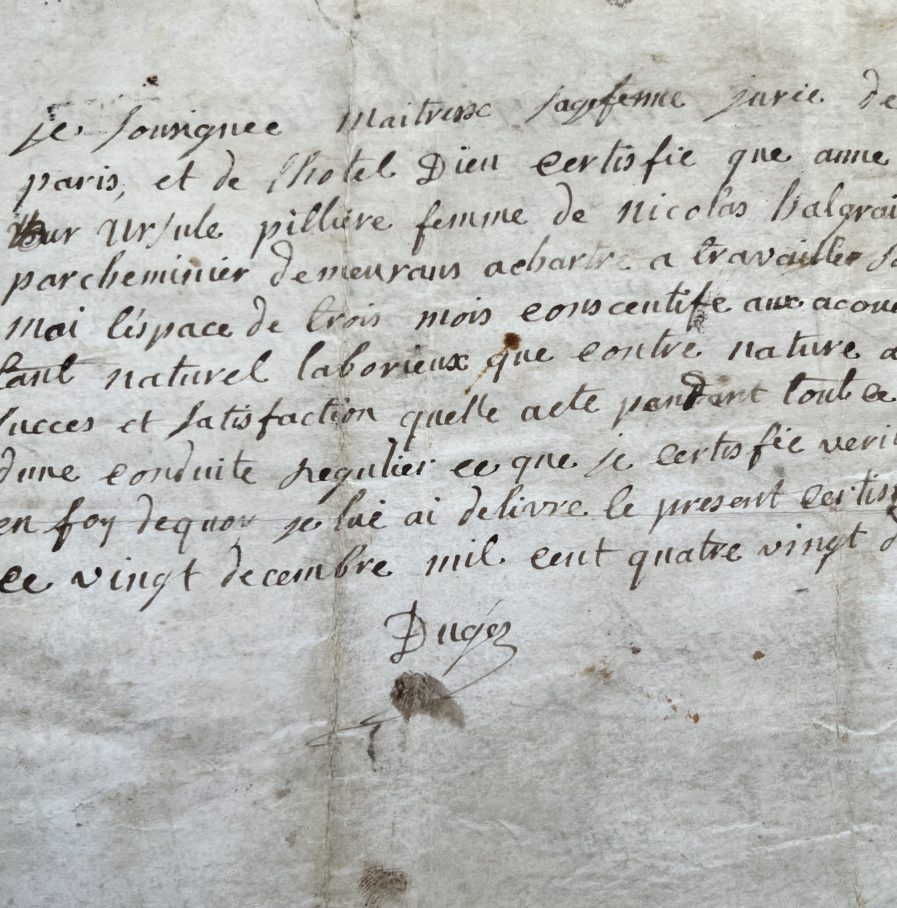 je sousignee Maitresse sagefemme jurée de
paris, et de lhotel Dieu certisfie que anne
Ursule pilliere femme de nicolas balgrai
parcheminier demeurans achartre a travailler so
mai l'éspace de trois mois conscentife aux acouc
tant naturel laborieux que contre nature a
succes et satisfaction quelle acte pendent tout ce
dune conduite regulier ce que je certisfie verit
en foy dequoy je lui ai delivre le present certisf
ce vingt decembre mil cent quatre vingt d
Dugés